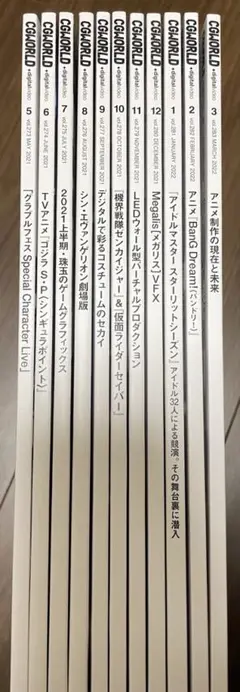 CGWORLD +digitalvideo 5 vol.273 MAY 2021 『グラブルフェス Special Character Live』
CGWORLD +digitalvideo 6 vol.274 JUNE 2021 TVアニメ『ゴジラ S・P〈シンギュラポイント〉』
CGWORLD +digitalvideo 7 vol.275 JULY 2021 2021上半期・珠玉のゲームグラフィックス
CGWORLD +digitalvideo 8 vol.276 AUGUST 2021 シン・エヴァンゲリオン劇場版
CGWORLD +digitalvideo 9 vol.277 SEPTEMBER 2021 デジタルで彩るコスチュームのセカイ
CGWORLD +digitalvideo 10 vol.278 OCTOBER 2021 『機界戦隊ゼンカイジャー』&『仮面ライダーセイバー』
CGWORLD +digitalvideo 11 vol.279 NOVEMBER 2021 LEDウォール型バーチャルプロダクション
CGWORLD +digitalvideo 12 vol.280 DECEMBER 2021 Megalis［メガリス］VFX
CGWORLD +digitalvideo 1 vol.281 JANUARY 2022 『アイドルマスター スターリットシーズン』アイドル32人による競演。その舞台裏に潜入
CGWORLD +digitalvideo 2 vol.282 FEBRUARY 2022 アニメ『BanG Dream!（バンドリ！）』
CGWORLD +digitalvideo 3 vol.283 MARCH 2022 アニメ制作の現在と未来